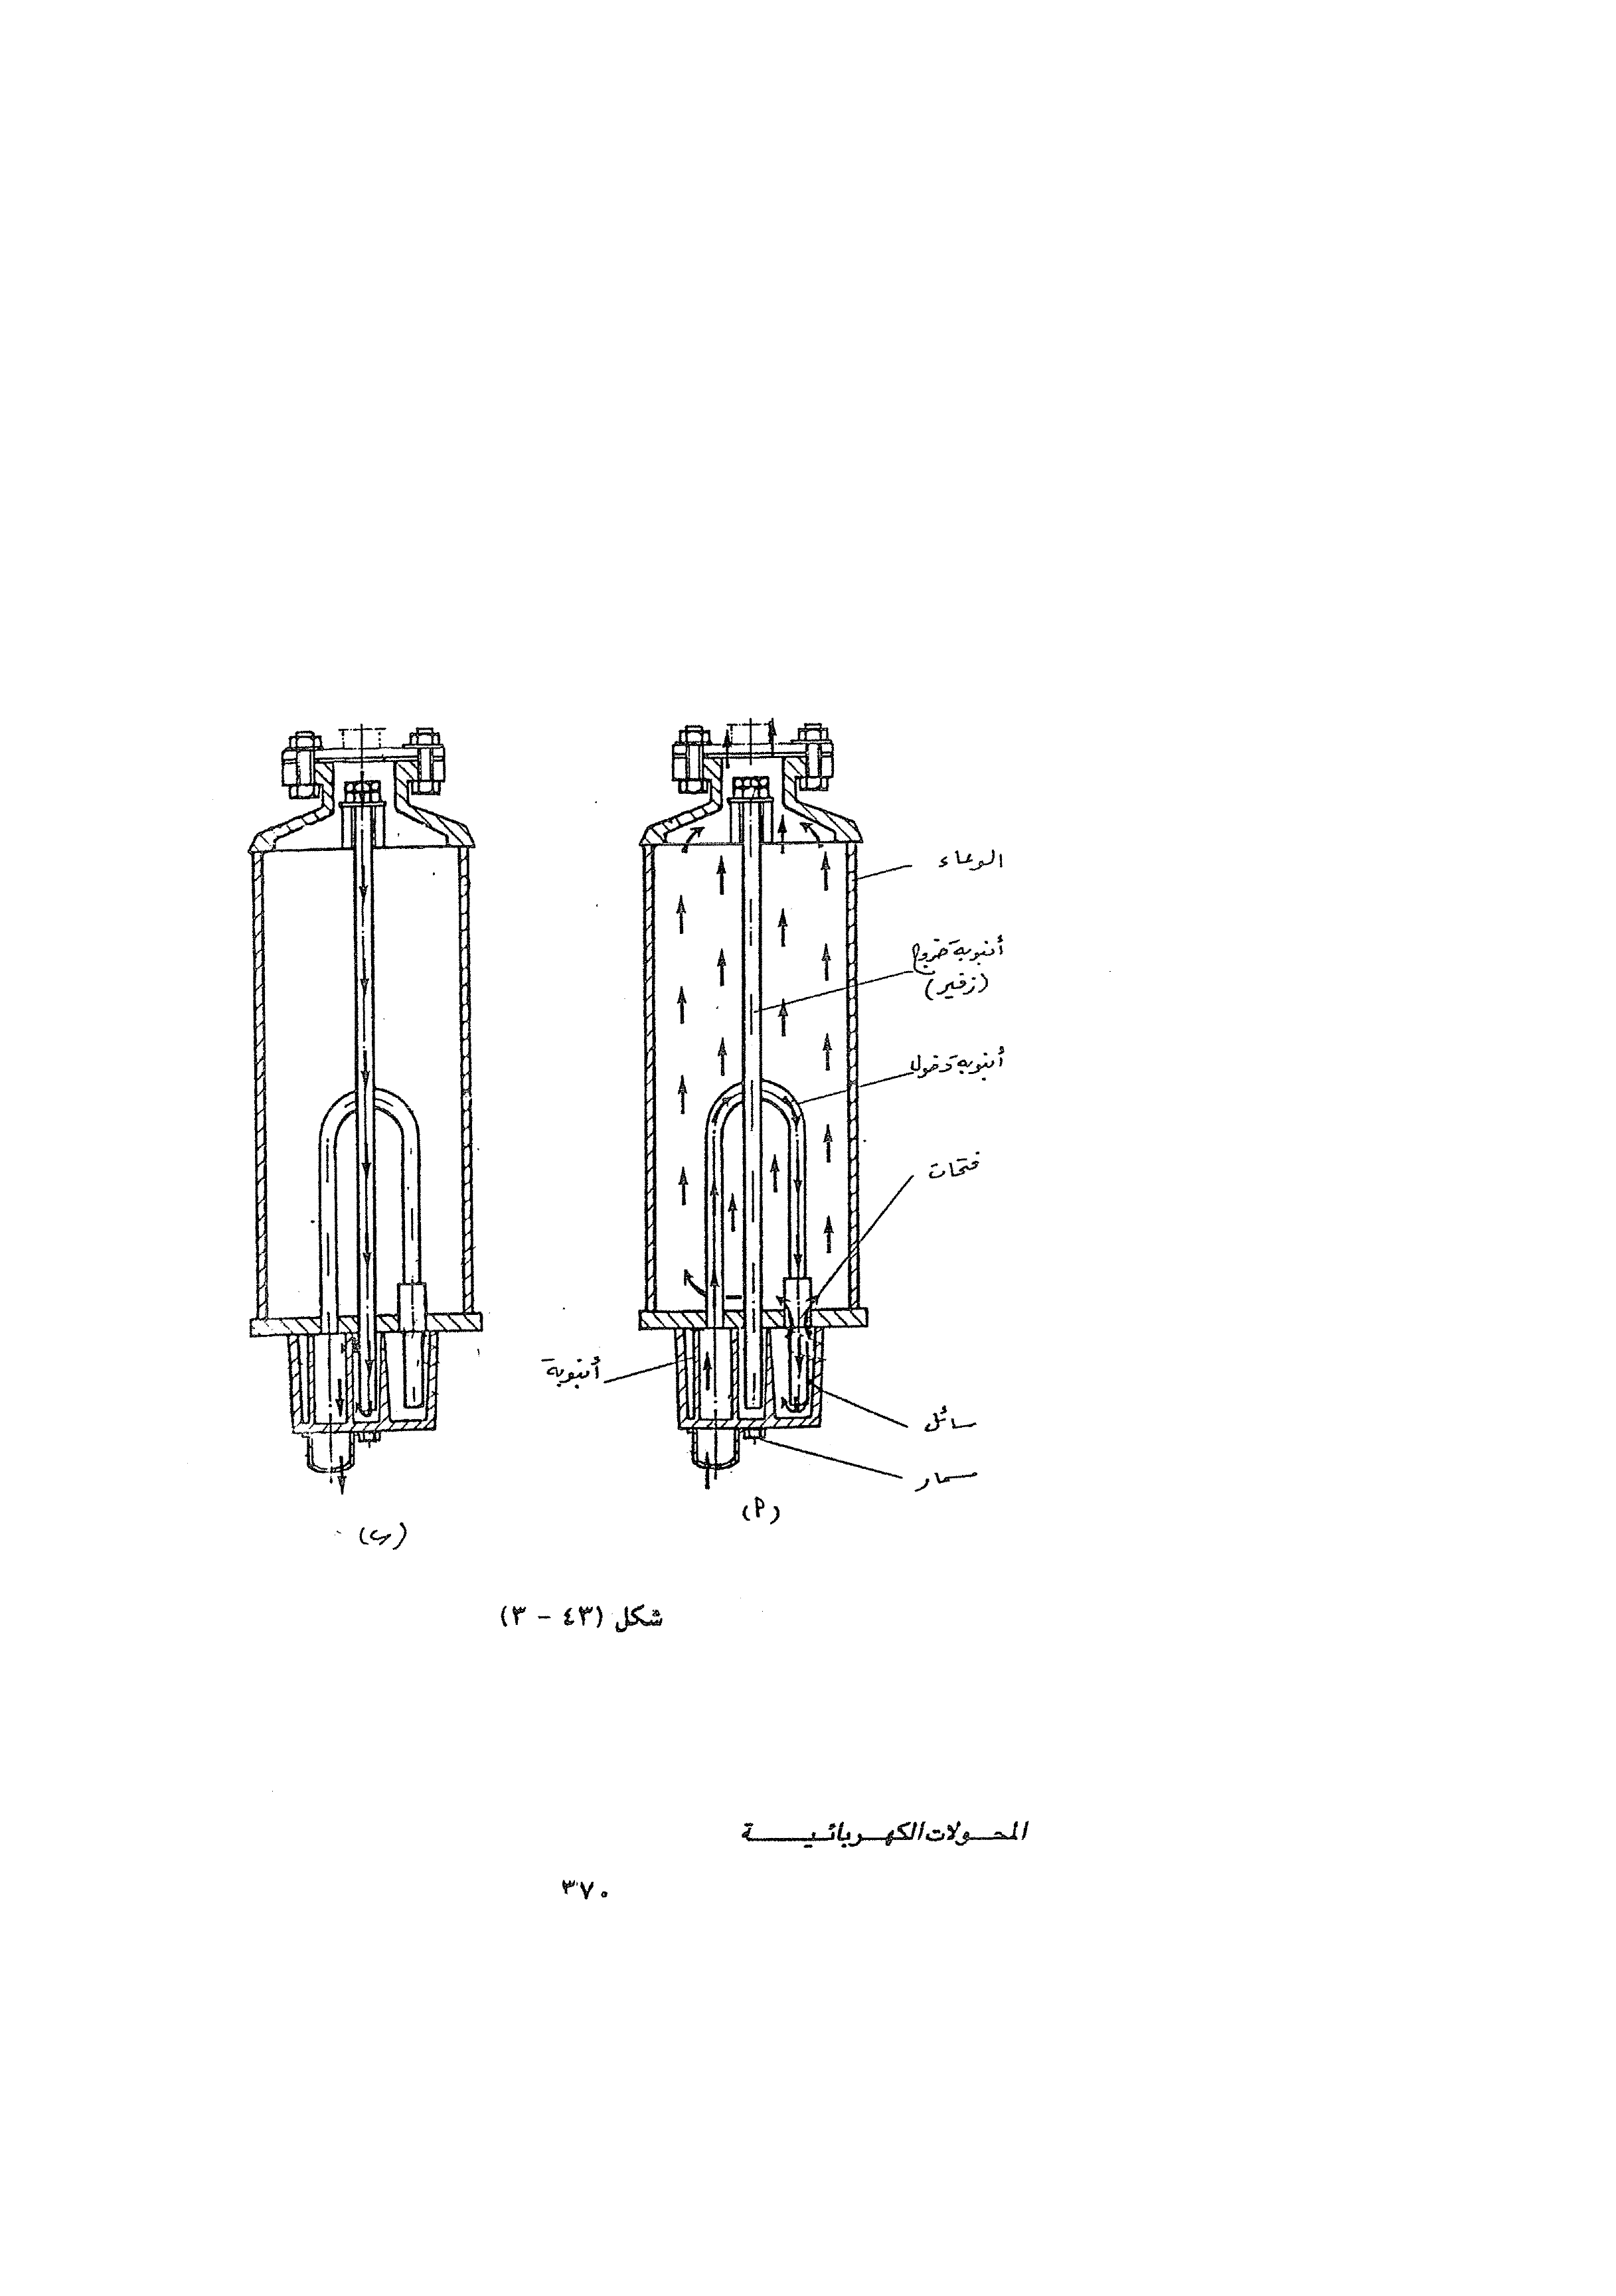 الوعاء
أنبوبة خروج
(زفير)
أنبوبة دخول
فتحات
أنبوبة
سائل
مسمار
(أ)
(ب)
شكل (٤٣ - ٣)
المحولات الكهربائية
٣٧٠